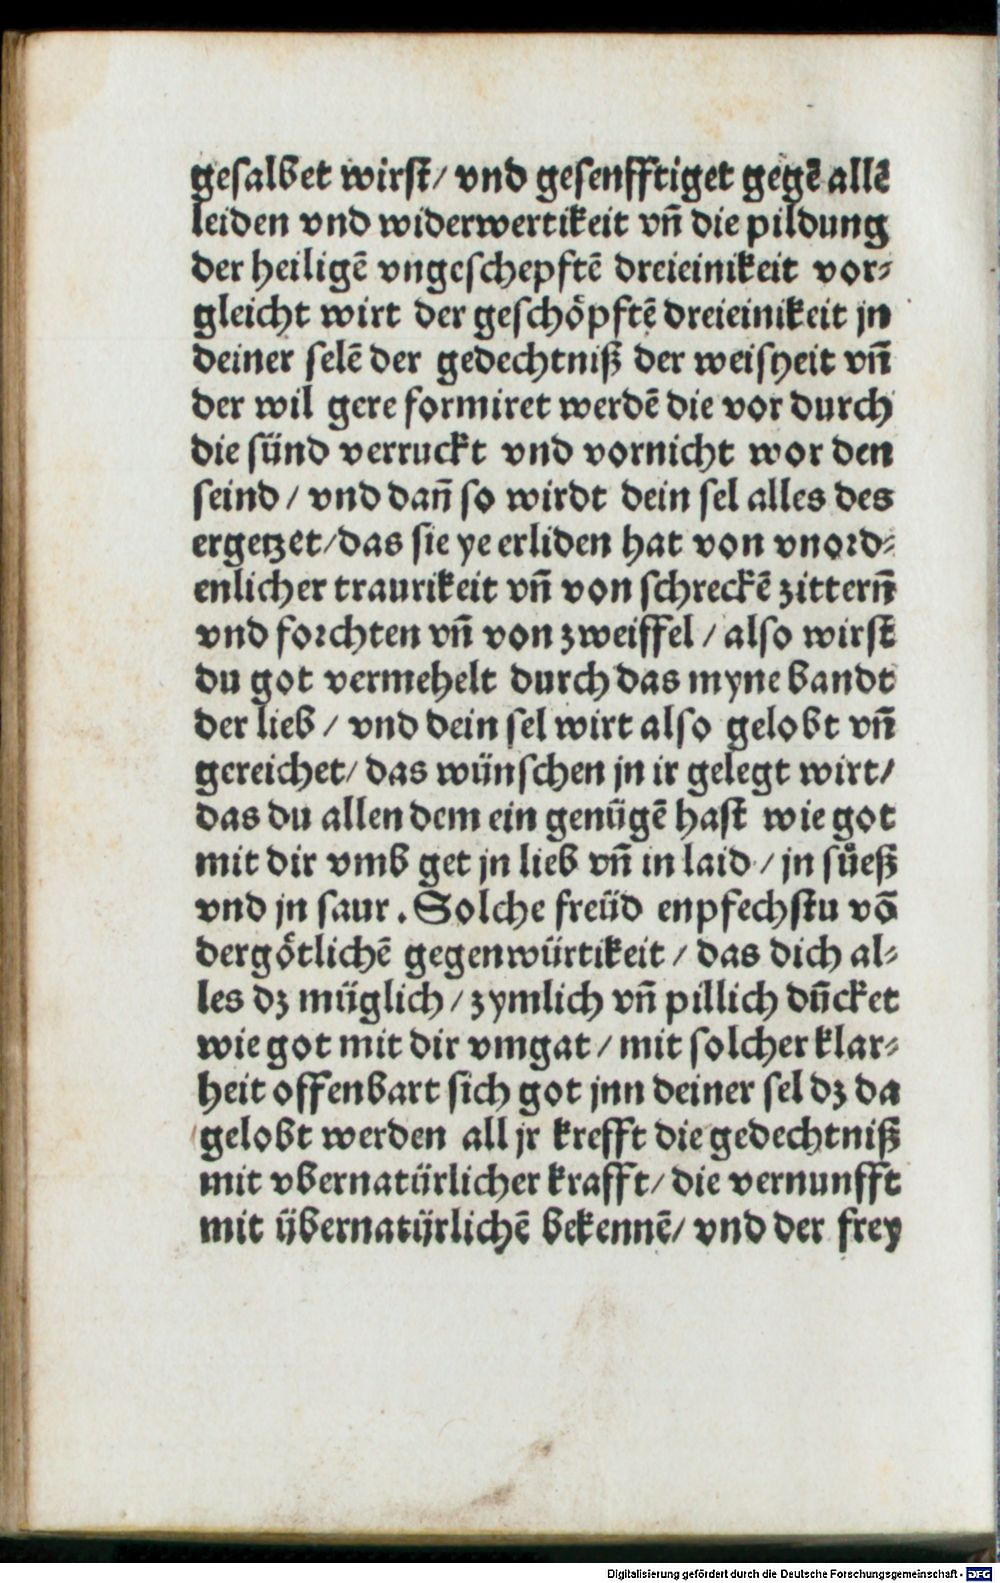 gesalbet wirst/ vnd gesenfftiget gegē allē
leiden vnd widerwertikeit vn̄ die pildung
der heiligē vngeschepftē dreieinikeit vor⸗
gleicht wirt der geschöpftē dreieinikeit jn
deiner selē der gedechtniß der weisheit vn̄
der wil gere formiret werdē die vor durch
die sünd verruckt vnd vornicht wor den
seind / vnd dan̄ so wirdt dein sel alles des
ergetzet/das sie ye erliden hat von vnord⸗
enlicher traurikeit vn̄ von schreckē zittern̄
vnd forchten vn̄ von zweiffel / also wirst
du got vermehelt durch das myne bandt
der lieb / vnd dein sel wirt also gelobt vn̄
gereichet/ das wünschen jn ir gelegt wirt/
das du allen dem ein genügē hast wie got
mit dir vmb get jn lieb vn̄ in laid / jn sůeß
vnd jn saur . Solche freüd enpfechstu vō
dergötlichē gegenwürtikeit / das dich al⸗
les dz müglich / zymlich vn̄ pillich dūcket
wie got mit dir vmgat / mit solcher klar⸗
heit offenbart sich got jnn deiner sel dz da
gelobt werden all jr krefft die gedechtniß
mit vbernatürlicher krafft/ die vernunfft
mit übernatürlichē bekennē/ vnd der frey
Digitalisierung gefördert durch die Deutsche Forschungsgemeinschaft - DFG